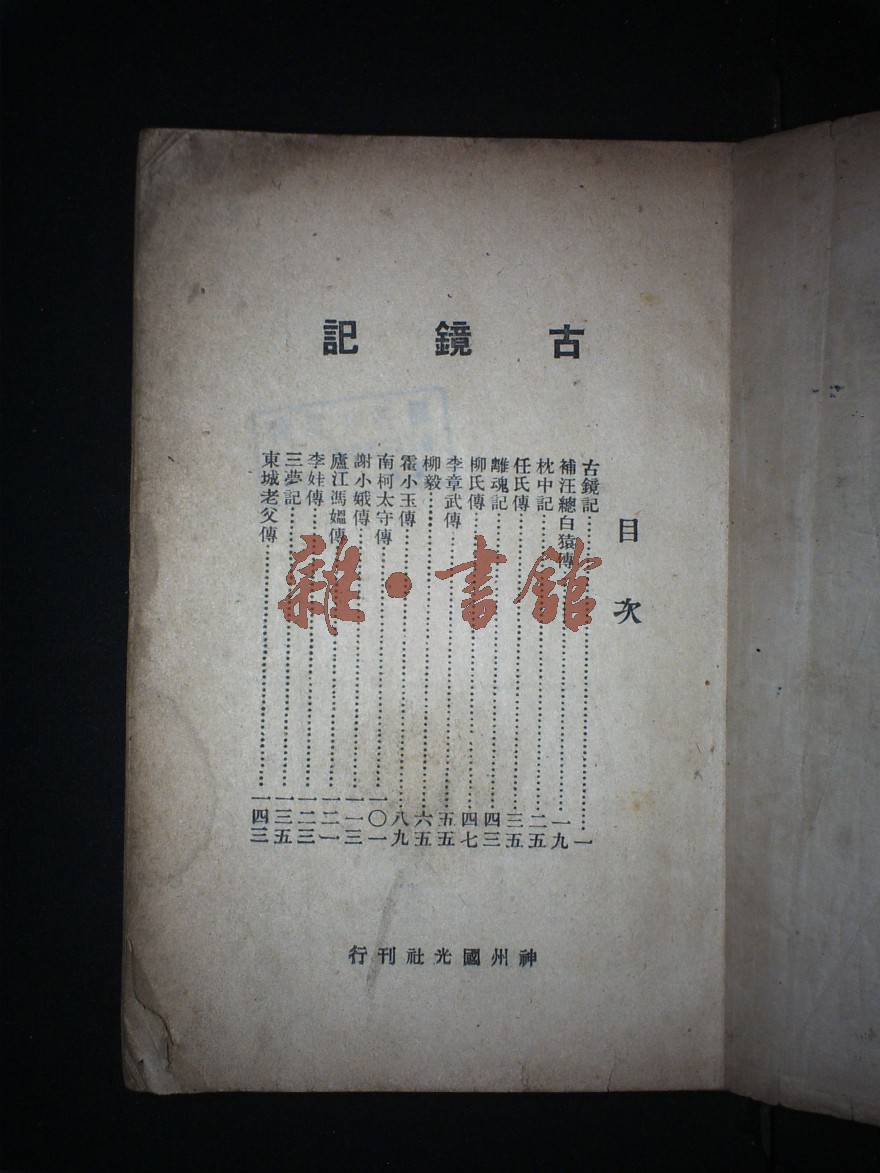 古鏡記
目次
古鏡記⋯⋯一
補汪總白猿傳⋯⋯一九
枕中記⋯⋯二五
任氏傳⋯⋯三五
離魂記⋯⋯四三
柳氏傳⋯⋯四七
李章武傳⋯⋯五五
柳毅⋯⋯六五
霍小玉傳⋯⋯八九
南柯太守傳⋯⋯一〇一
謝小娥傳⋯⋯一一三
廬江馮媼傳⋯⋯一二一
李娃傳⋯⋯一二三
三夢記⋯⋯一三五
東城老父傳⋯⋯一四三
神州國光社刊行
雜·書館